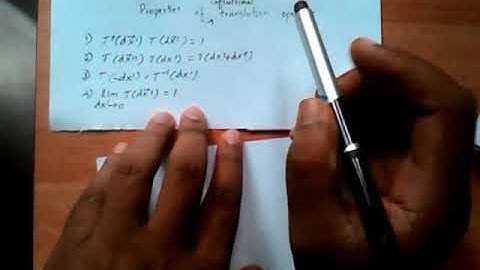 Properties of infinitesimal translation ope
1) T†(dx⃗') T(dx⃗') = 1
2) T(dx⃗'') T(dx') = T(dx'+dx'')
3) T(-dx') = T⁻¹(dx')
4) lim T(dx⃗') = 1
dx'→0